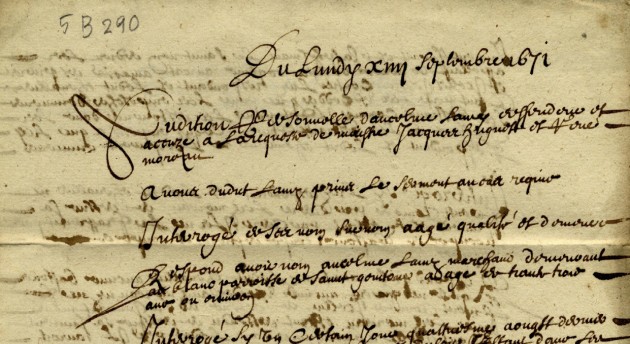 5 B 290
Du Lundy xiiii Septembre 1671
Audition personnelle d'Ancelme Lamy deffendeur et
accuzé a La requeste de maistre Jacques et
moreau
Avons dudit Lamy prins Le serment au cas requis
Interrogé de son nom surnom aage qualité et demeure
Respond avoir nom ancelme Lamy marchand demeurant
au blanc parroisse de Sainct genitour aagé de trante trois
ans ou environ
Interrogé sy un certain Jour quatriesme aougst dernier